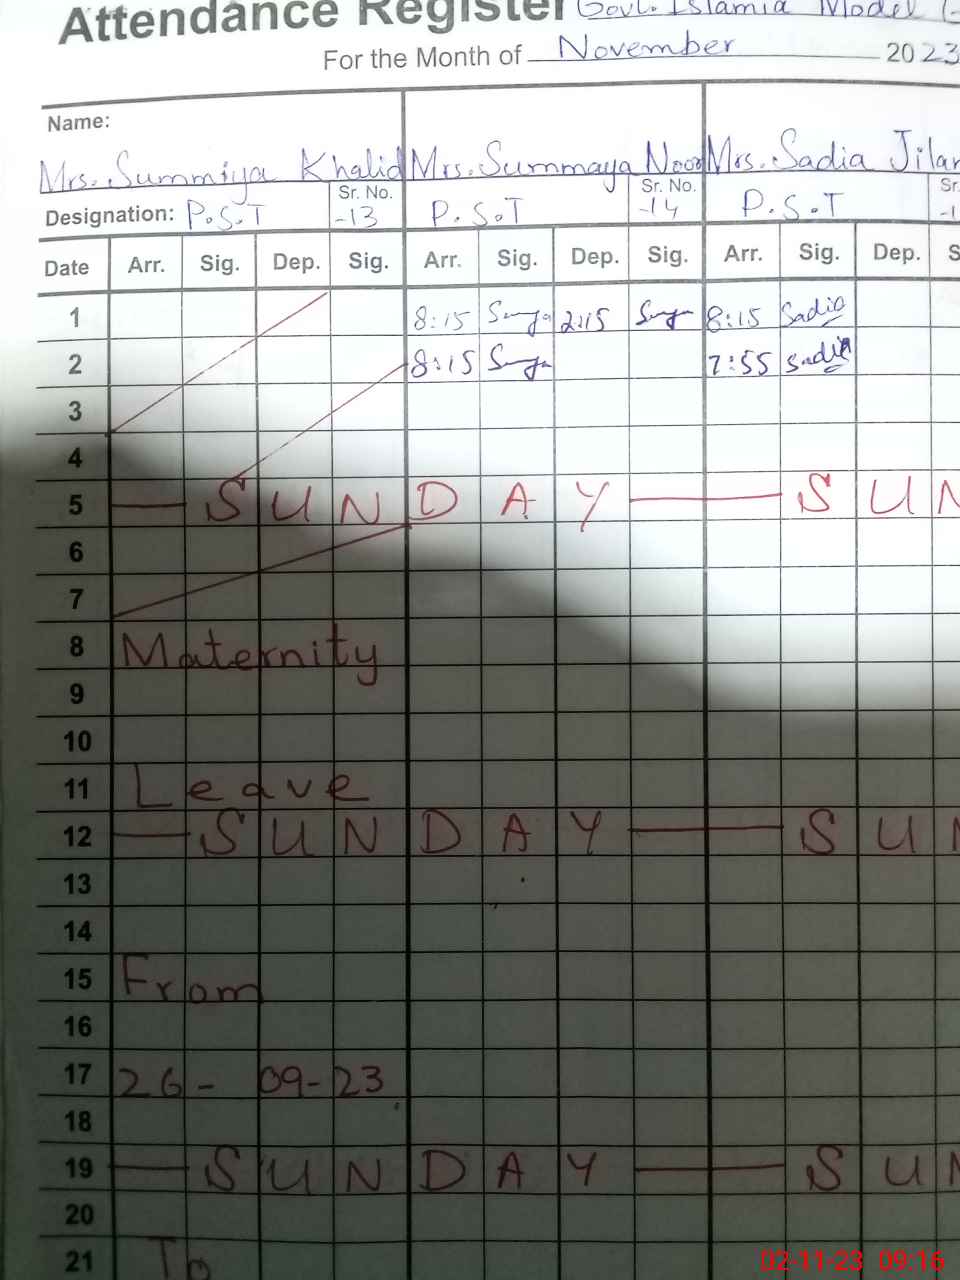 Attendance Register Govt. Islamia Model
For the Month of November 2023
Name:
Mrs. Summiya Khalid Mrs. Summaya Noor Mrs. Sadia
Designation: P.S.T Sr. No. -13 P.S.T Sr. No. -14 P.S.T
Date Arr. Sig. Dep. Sig. Arr. Sig. Dep. Sig. Arr. Sig. Dep.
1 8:15 2:15 8:15 Sadia
2 8:15 7:55 Sadia
3
4
5 SUNDAY SUN
6
7
8 Maternity
9
10
11 Leave
12 SUNDAY SU
13
14
15 From
16
17 26-09-23
18
19 SUNDAY SU
20
21 To
02-11-23 09:16